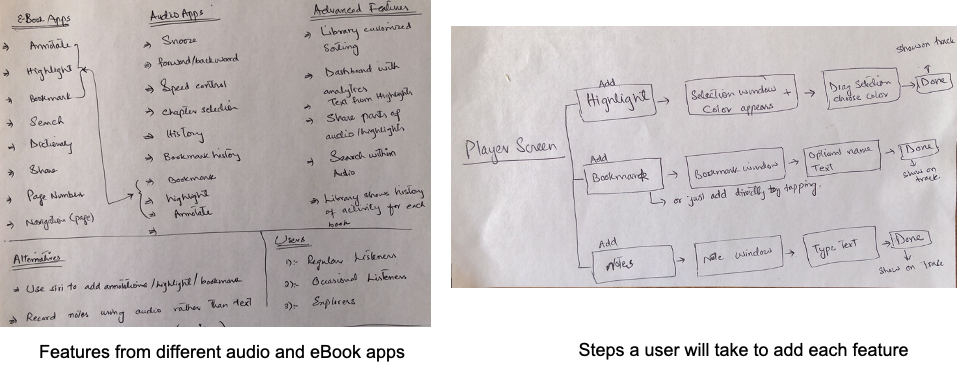 E-Book Apps
→ Annotate
→ Highlight
→ Bookmark
→ Search
→ Dictionary
→ Share
→ Page Number
→ Navigation (page)
Audio Apps
→ Snooze
→ forward/backward
→ Speed control
→ chapter selection
→ History
→ Bookmark history
→ Bookmark
→ highlight
→ Annotate
→
Advanced Features
→ Library customized
Sorting
→ Dashboard with
analytics
→ Text from Highlights
→ Share parts of
audio/highlights
→ Search within
Audio
→ Library shows history
of activity for each
book
Alternatives
→ Use siri to add annotations/highlight/bookmark
→ Record notes using audio rather than text
Users
1):- Regular Listeners
2):- Occasional Listeners
3):- Explorers
Player Screen
Add
Highlight
Selection window +
Color appears
Drag Selection
choose color
Done
show on track
Add
Bookmark
Bookmark window
Optional name
Text
Done
show on
track.
or just add directly by tapping.
Add
notes
Note window
Type Text
Done
show on Track
Features from different audio and eBook apps
Steps a user will take to add each feature